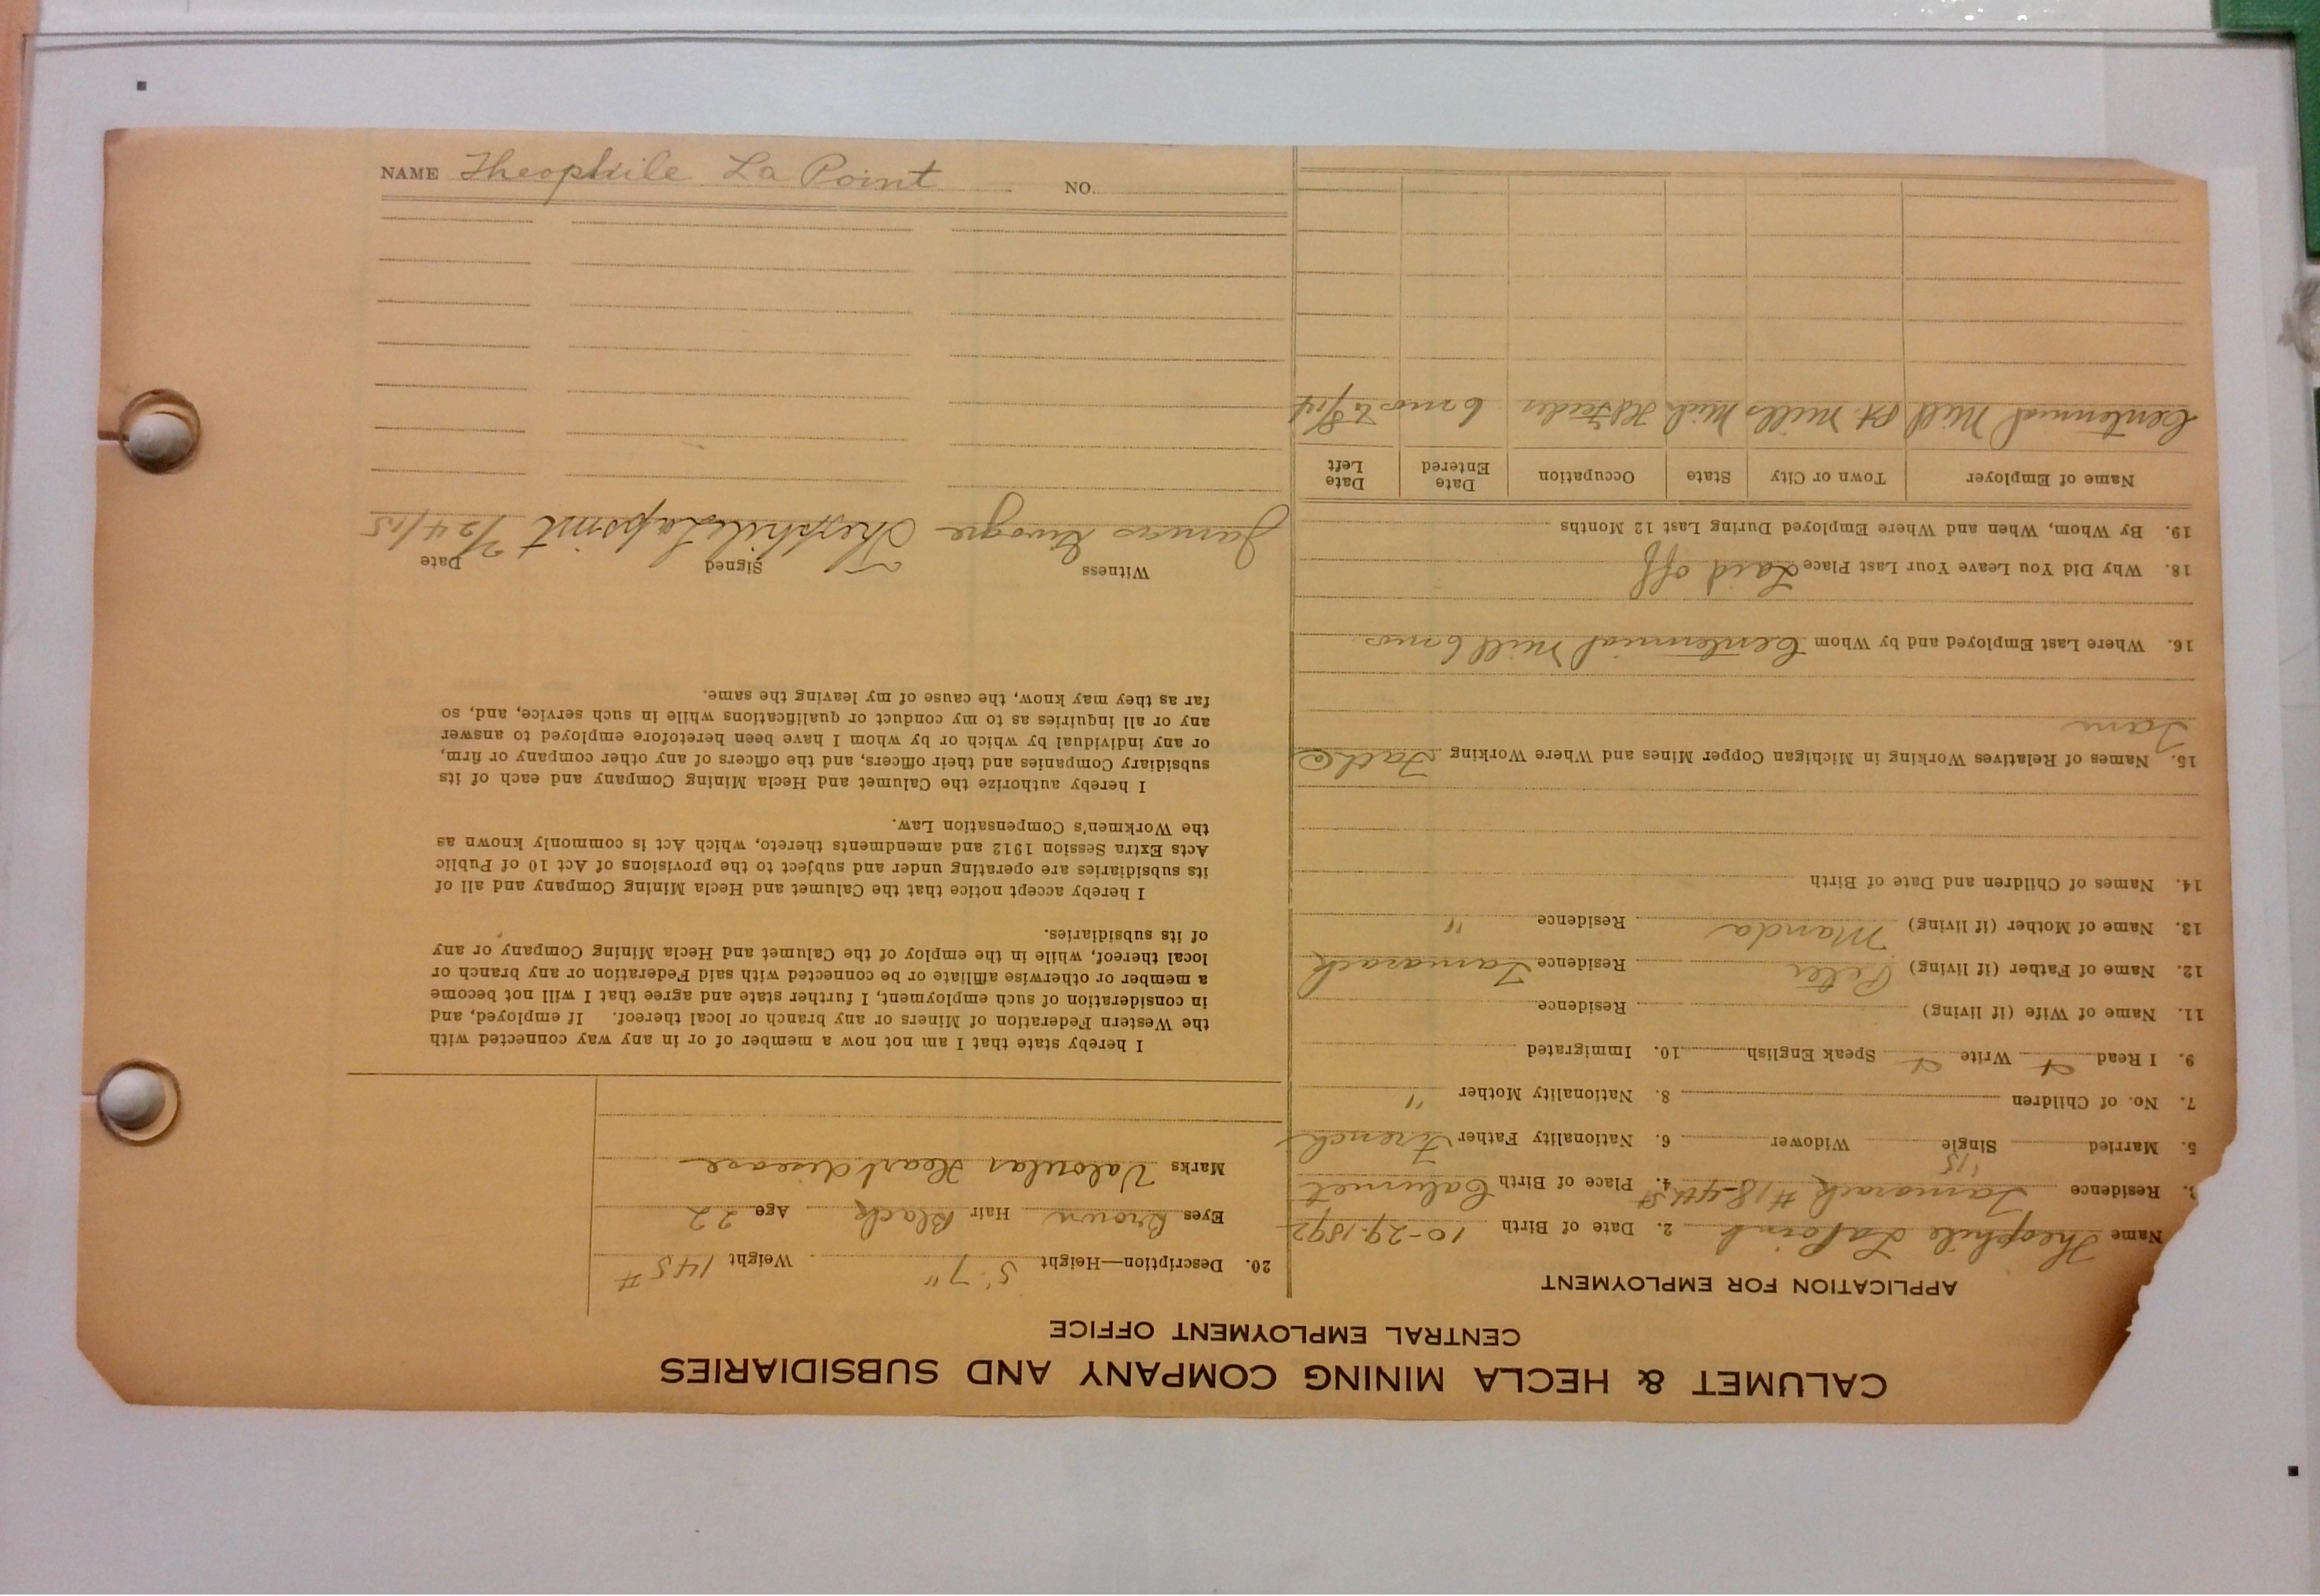 CALUMET & HECLA MINING COMPANY AND SUBSIDIARIES
CENTRAL EMPLOYMENT OFFICE
APPLICATION FOR EMPLOYMENT
Name Theophile LaPoint 2. Date of Birth 10-29-1892
3. Residence Tamarack #18-4th St 4. Place of Birth Calumet
5. Married Single Widower 6. Nationality Father French
7. No. of Children 8. Nationality Mother "
9. I Read Write Speak English 10. Immigrated
11. Name of Wife (if living) Residence
12. Name of Father (if living) Peter Residence Tamarack
13. Name of Mother (if living) Manda Residence "
14. Names of Children and Date of Birth
15. Names of Relatives Working in Michigan Copper Mines and Where Working Father
Tam
16. Where Last Employed and by Whom Centennial Mill 6 mos.
18. Why Did You Leave Your Last Place Laid off
19. By Whom, When and Where Employed During Last 12 Months
Name of Employer Town or City State Occupation Date Entered Date Left
Centennial Mill Pt. Mills Mich Feeder 6 mos 8/14
20. Description—Height 5' 7" Weight 145 #
Eyes Brown Hair Black Age 22
Marks Valvular Heart disease
I hereby state that I am not now a member of or in any way connected with
the Western Federation of Miners or any branch or local thereof. If employed, and
in consideration of such employment, I further state and agree that I will not become
a member or otherwise affiliate or be connected with said Federation or any branch or
local thereof, while in the employ of the Calumet and Hecla Mining Company or any
of its subsidiaries.
I hereby accept notice that the Calumet and Hecla Mining Company and all of
its subsidiaries are operating under and subject to the provisions of Act 10 of Public
Acts Extra Session 1912 and amendments thereto, which Act is commonly known as
the Workmen's Compensation Law.
I hereby authorize the Calumet and Hecla Mining Company and each of its
subsidiary Companies and their officers, and the officers of any other company or firm,
or any individual by which or by whom I have been heretofore employed to answer
any or all inquiries as to my conduct or qualifications while in such service, and, so
far as they may know, the cause of my leaving the same.
Witness Signed Date
James Theophile Lapoint 2/24/15
NAME Theophile La Point NO.